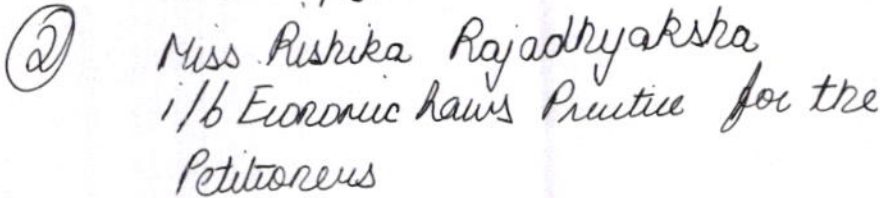 ② Miss Rishika Rajadhyaksha
i/b Economic Laws Practice for the
Petitioners